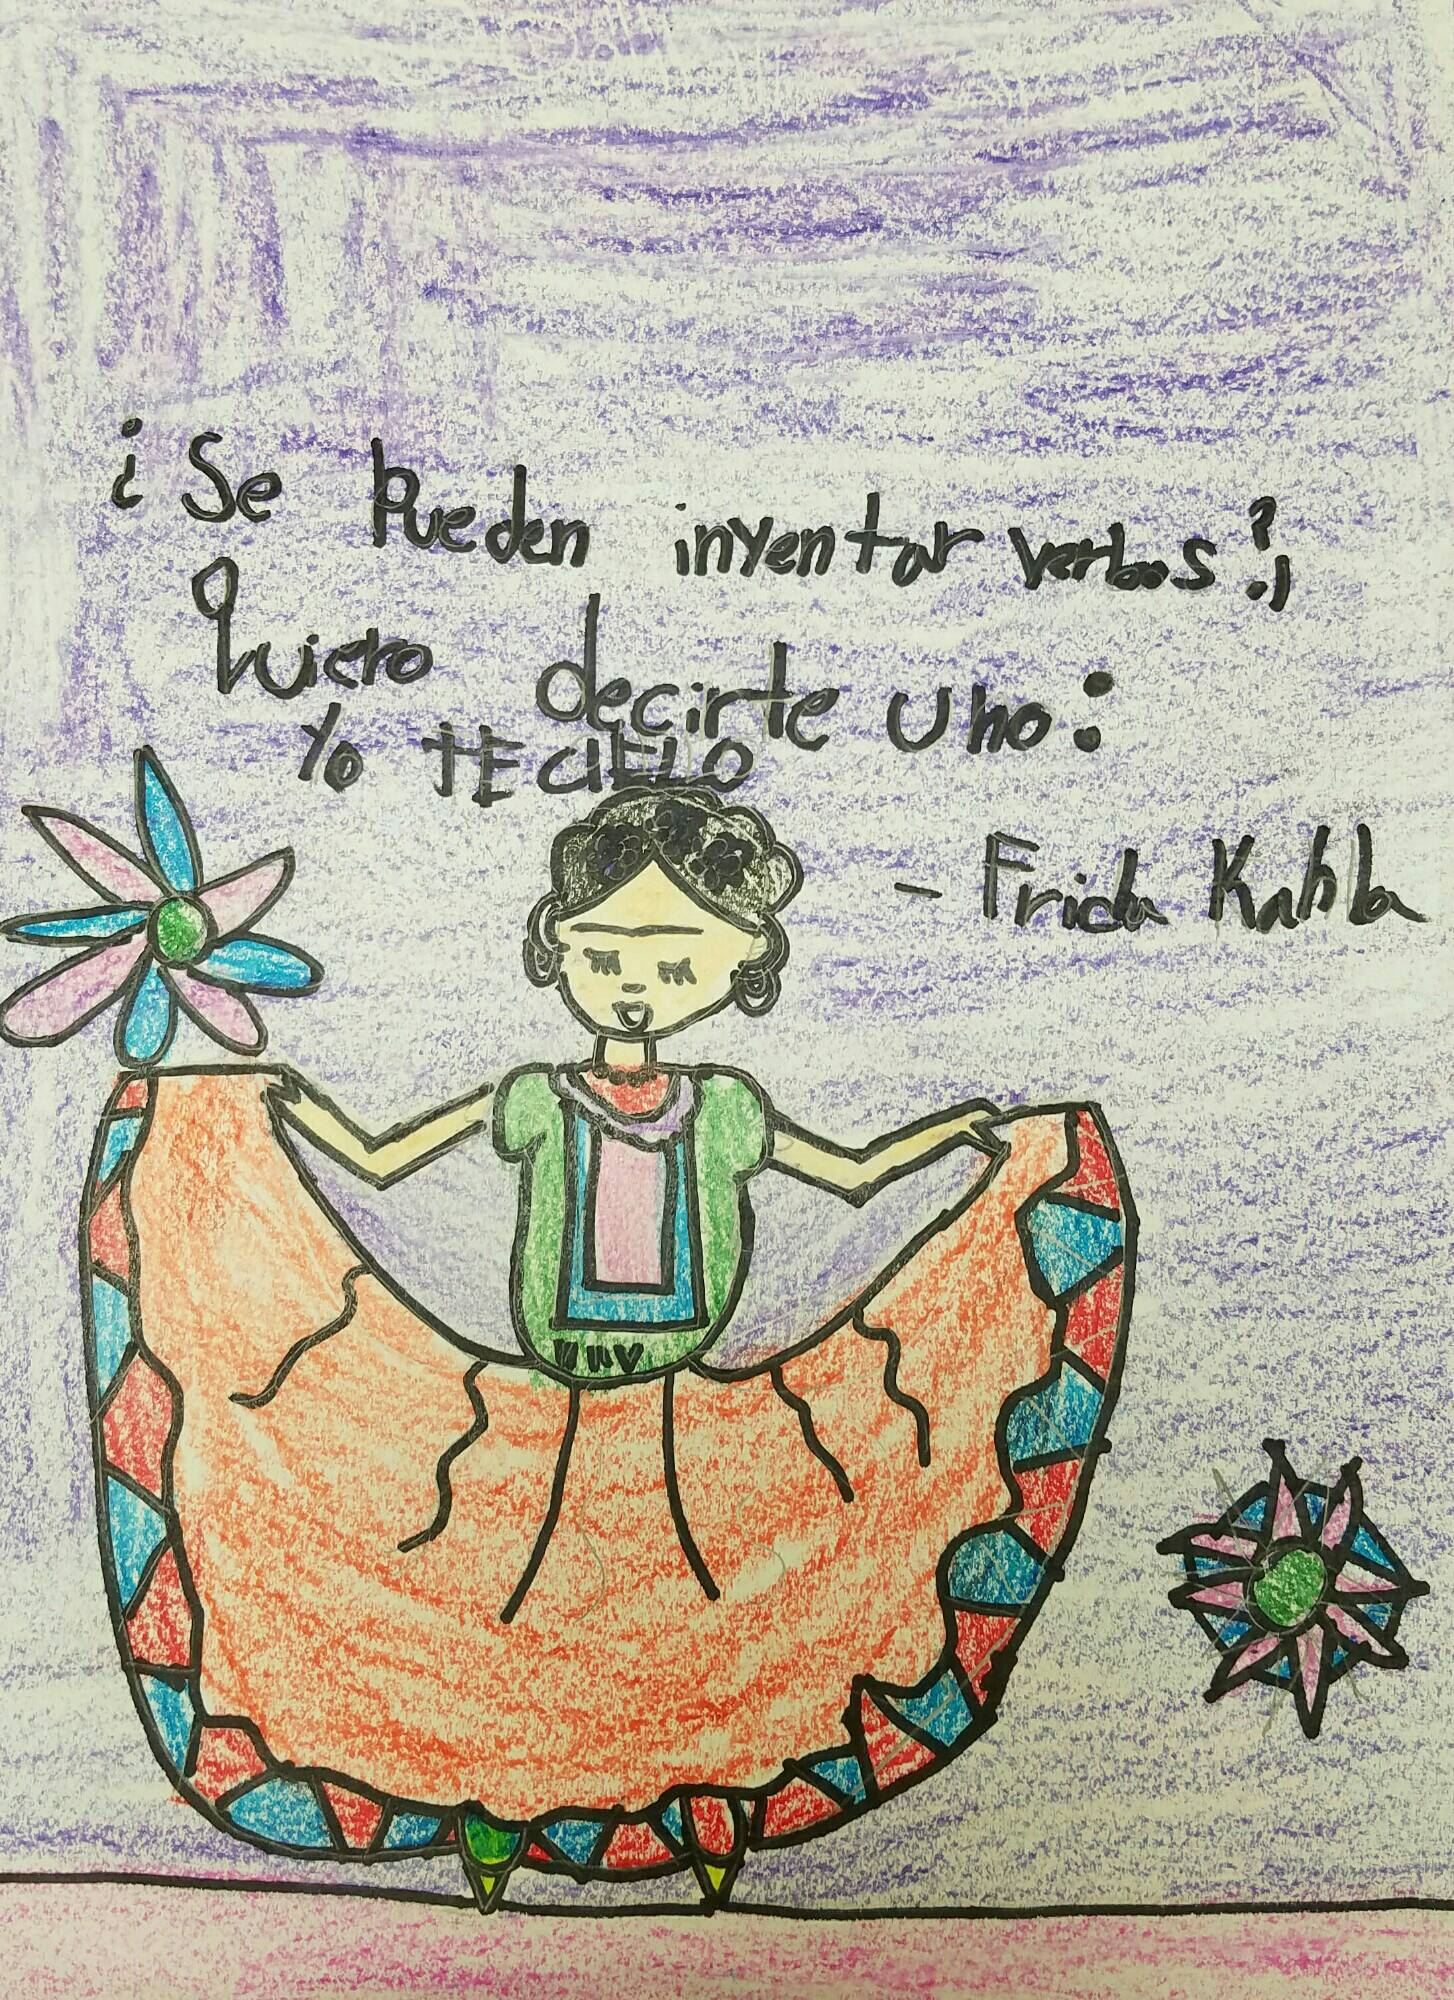 ¿Se Pueden inventar verbos?,
Quiero decirte uno:
Yo TE CIELO
- Frida Kahlo